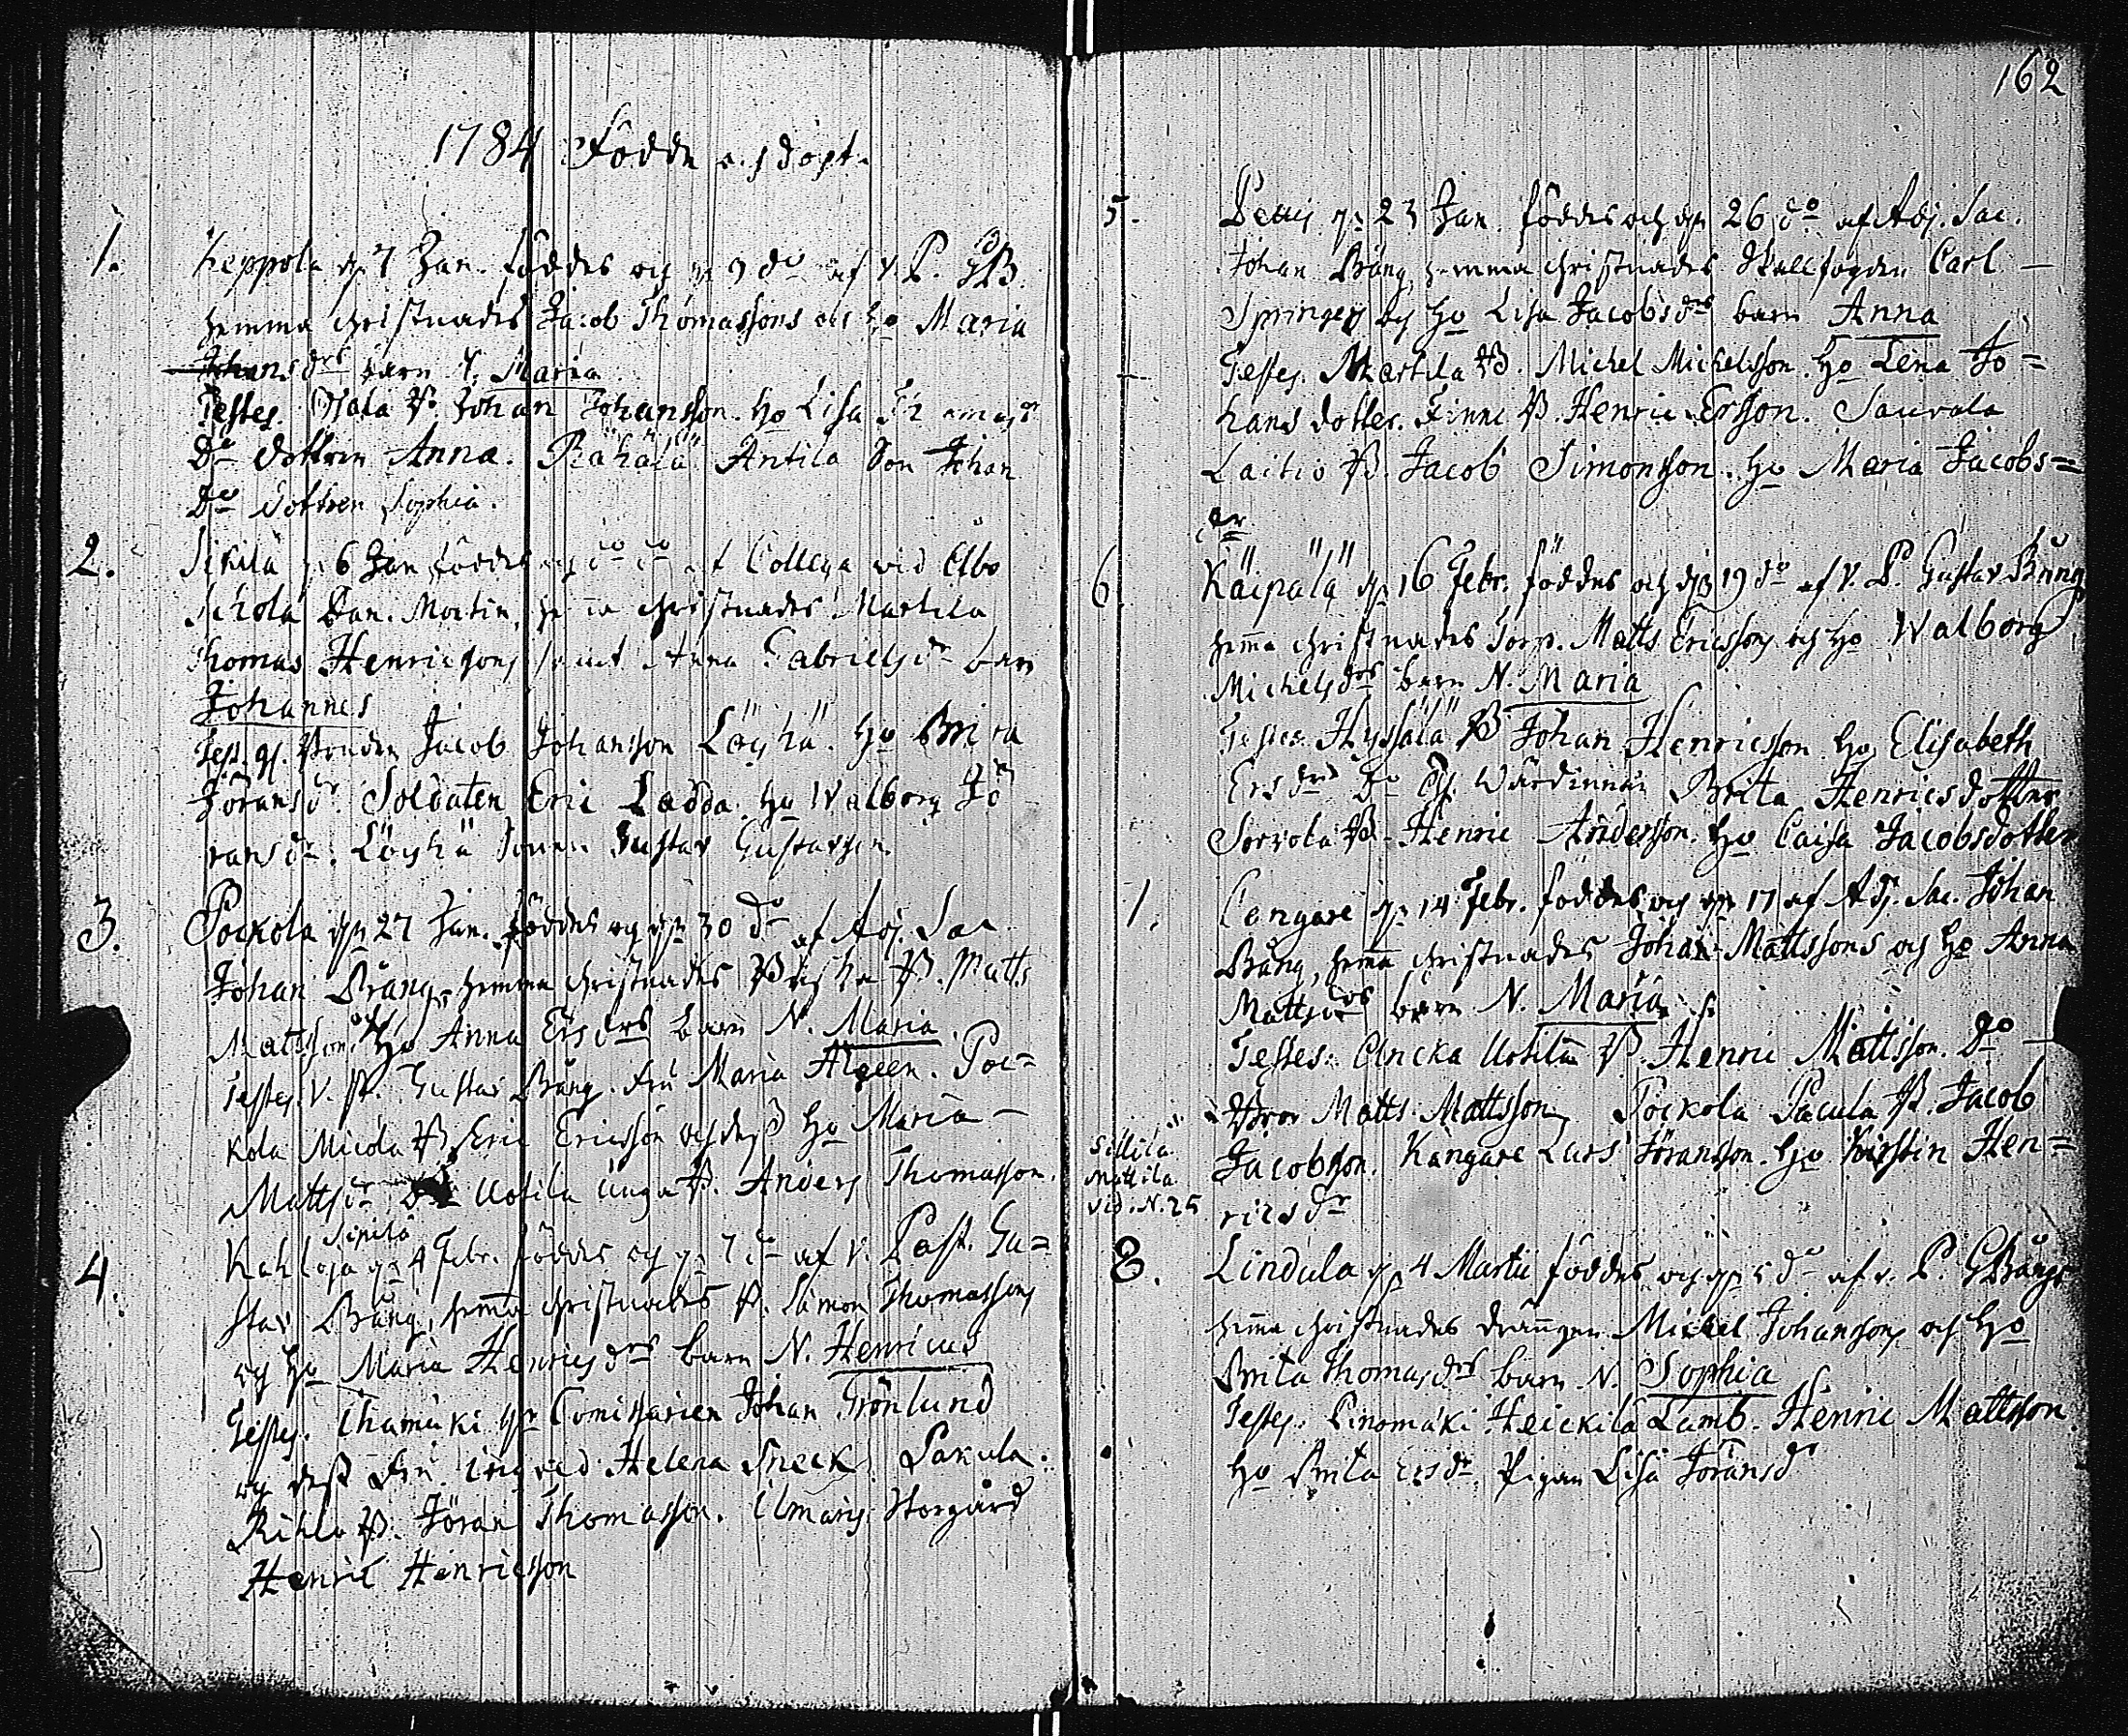 1784 Födde och döpte
1. Keppola dn 7 Jan. föddes och dn 9 do af V. P. GB.
hemma christnades Jacob Thomassons och Ho Maria
Johansdrs barn N. Maria
Testes. Ojala B. Johan Johansson. Ho Lisa
Do dottren Anna. Rähälä Antila Son Johan
Do dottren Sophia.
2. Sikilä 6 Jan föddes och do do af Collega vid Åbo
Schola Dan. Mortin, christnades Martila
Thomas Henricsons samt Anna Gabrielsdr barn
Johannes
Test. Bonden Jacob Johansson Löyhä. Ho Brita
Jöransdr. Soldaten Eric Ladda. Ho Walborg Jö
ransdr. Löyhä Sonen Gustav Gustavsson.
3. Pockola dn 27 Jan. föddes och dn 30 do af Adj. Sac.
Johan Bräng, hemma christnades B. Matts
Mattson. Ho Anna Ersdrs barn N. Maria.
Testes. V. P. Gustav Bräng. Fru Maria Algeen. Poc=
kola Micola B. Eric Ericsson och dess Ho Maria
Mattsdr Uotila unga B. Anders Thomasson.
Sipilä
4. Kahloja dn 4 Febr. föddes och dn 7 do af V. Past. Gu=
stav Bräng, hemma christnades B. Simon Thomassons
och Ho Maria Henricsdrs barn N. Henricus
Testes. Commissarien Johan Grönlund
och dess Fru Ingred Helena Sneck. Pakula
B. Jöran Thomasson. Ilmaris Storgård
Henric Henricsson
162
5. dn 23 Jan. föddes och dn 26 do af Adj. Sac.
Johan Bräng, hemma christnades Skallfogden Carl
Springers och Ho Lisa Jacobsdrs barn Anna
Testes. Martila B. Michel Michelsson. Ho Lena Jo=
hans dotter. Finni B. Henric Ersson. Sauvala
Laitio B. Jacob Simonsson. Ho Maria Jacobs=
dr
6. Käipälä dn 16 Febr. föddes och dn 19 do af V. P. Gustav Bräng
hemma christnades Torp. Matts Ericssons och Ho Walborg
Michelsdrs barn N. Maria
Testes. Hyssälä B Johan Henricsson Ho Elisabeth
Ersdr Do Wärdinnan Brita Henricsdotter
Sorvola B. Henric Andersson. Ho Caisa Jacobsdotter
7. Cangare dn 14 Febr. föddes och dn 17 af Adj. Sac. Johan
Bräng, hemma christnades Johan Mattssons och Ho Anna
Mattsdrs barn N. Maria
Testes. Uncka Uotila B. Henric Mattsson. Do
Bror Matts Mattsson, Pockola Pacula B. Jacob
Jacobson. Kangare Lars Jöransson. Ho Kirstin Hen=
ricsdr
Sillilä
Mattila
vid. N. 25
8. Lindula dn 4 Martii föddes och dn 5 do af v. P. GBräng
hemma christnades drängen Michel Johanssons och Ho
Brita Thomasdrs barn N. Sophia
Testes. Pinomäki Heickilä Lamb. Henric Mattsson
Ho Brita Ersdr, Pigan Lisa Jöransdr